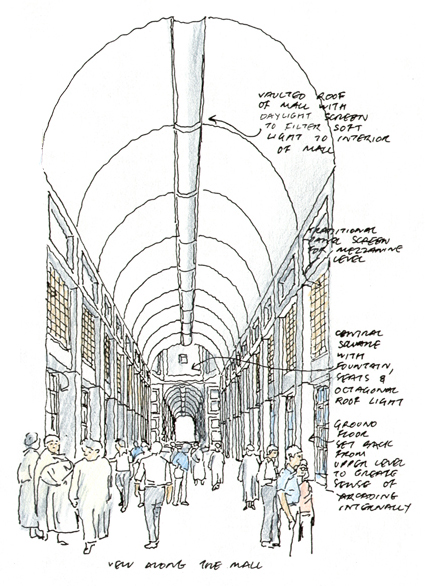 VAULTED ROOF
OF MALL WITH
DAYLIGHT SCREEN
TO FILTER SOFT
LIGHT TO INTERIOR
OF MALL
TRADITIONAL
SCREEN
FOR MEZZANINE
LEVEL
CENTRAL
SQUARE
WITH
FOUNTAIN,
SEATS &
OCTAGONAL
ROOF LIGHT
GROUND
FLOOR
SET BACK
FROM
UPPER LEVEL
TO CREATE
SENSE OF
ARCADING
INTERNALLY
VIEW ALONG THE MALL